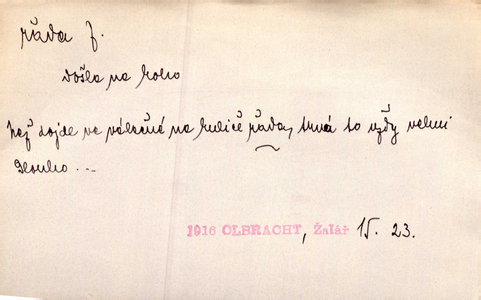 řada f.
došla na koho
Než dojde ve válečné na kuliče řada, trvá to vždy velmi
dlouho...
1916 OLBRACHT, Žalář 15. 23.